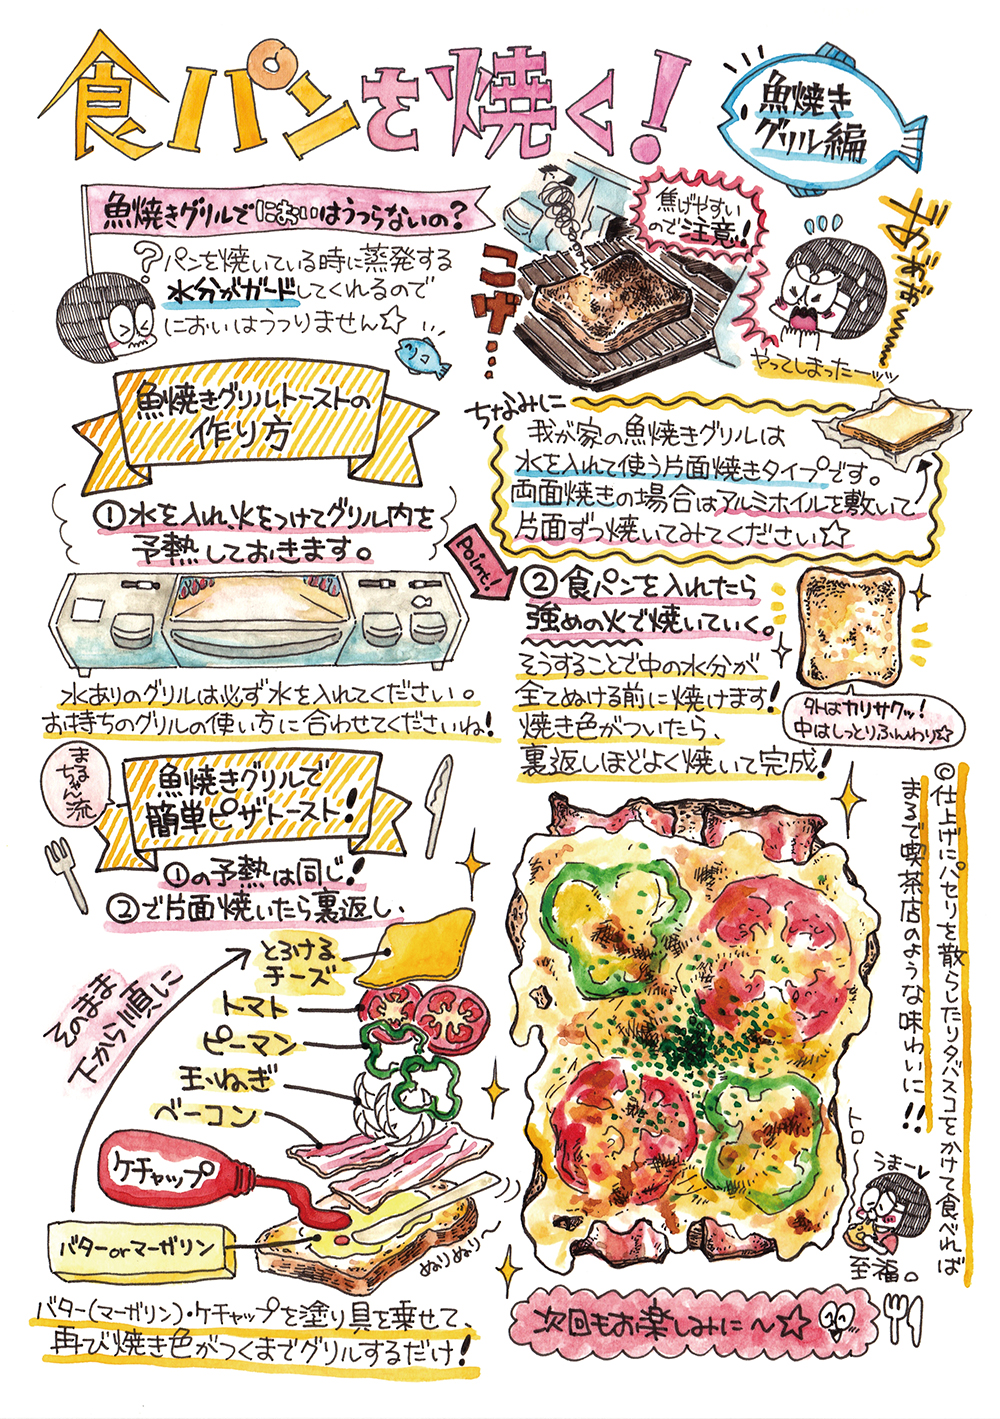 食パンを焼く!
魚焼き
グリル編
魚焼きグリルでにおいはうつらないの?
?パンを焼いている時に蒸発する
水分がガードしてくれるので
においはうつりません☆
焦げやすい
ので注意!!
こげ…
やってしまったーッッ
魚焼きグリルトーストの
作り方
ちなみに
我が家の魚焼きグリルは
水を入れて使う片面焼きタイプです。
両面焼きの場合はアルミホイルを敷いて
片面ずつ焼いてみてください☆
①水を入れ、火をつけてグリル内を
予熱しておきます。
水ありのグリルは必ず水を入れてください。
お持ちのグリルの使い方に合わせてくださいね!
Point!
②食パンを入れたら
強めの火で焼いていく。
そうすることで中の水分が
全てぬける前に焼けます!
焼き色がついたら、
裏返しほどよく焼いて完成!
外はカリサクッ!
中はしっとりふんわり☆
まるちゃん流
魚焼きグリルで
簡単ピザトースト!
①の予熱は同じ!
②で片面焼いたら裏返し、
そのまま
下から順に
とろける
チーズ
トマト
ピーマン
玉ねぎ
ベーコン
ケチャップ
バターorマーガリン
ぬりぬり〜
バター(マーガリン)・ケチャップを塗り具を乗せて、
再び焼き色がつくまでグリルするだけ!
◎仕上げにパセリを散らしたりタバスコをかけて食べれば
まるで喫茶店のような味わいに!!
トロ〜
うまー
至福。
次回もお楽しみに〜☆